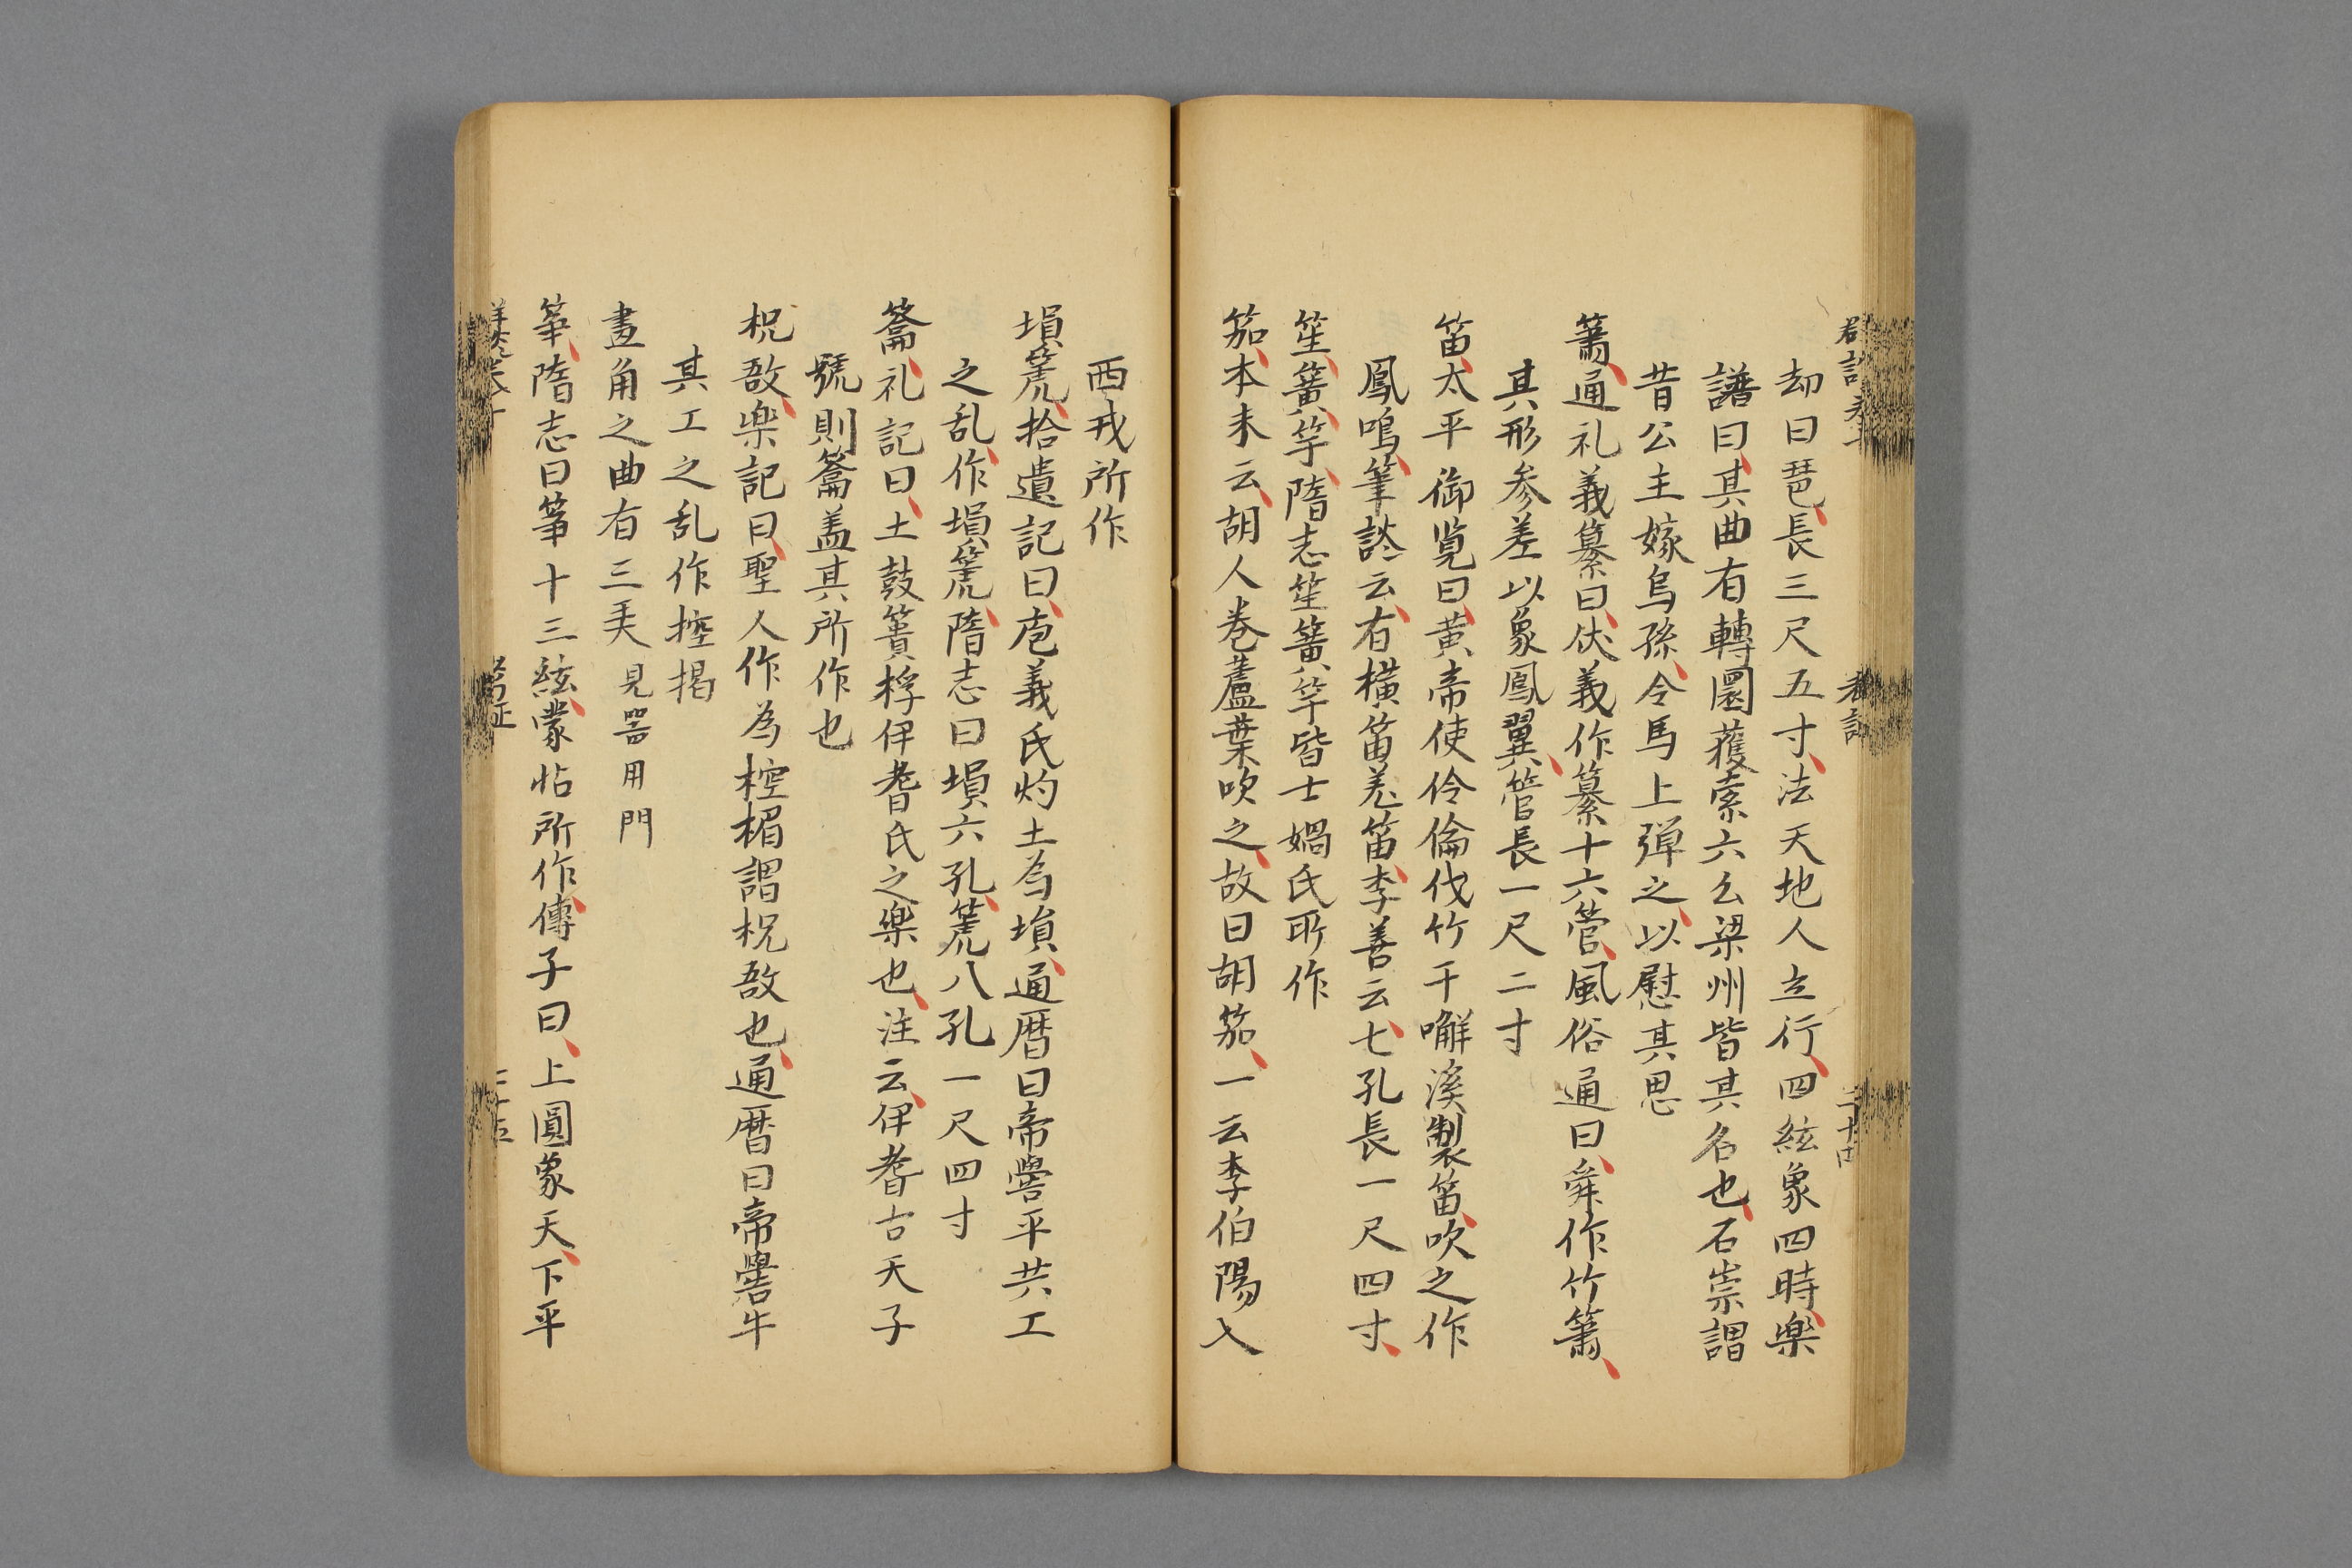 却曰琵長三尺五寸法天地人五行四絃象四時楽
譜曰其曲有轉圜蒦索六幺梁州皆其名也石崇謂
昔公主嫁烏孫令馬上弾之以慰其思
簫通礼義纂曰伏義作纂十六管風俗通曰舜作竹簫
其形参差以象鳳翼管長一尺二寸
笛太平御覧曰黄帝使伶倫伐竹于嶰溪製笛吹之作
鳳鳴筆談云有横笛羌笛李善云七孔長一尺四寸
笙簧竽隋志笙簧竽皆士媧氏所作
笳本末云胡人巻蘆葉吹之故曰胡笳一云李伯陽入
西戎所作
塤箎拾遺記曰庖義氏灼土為塤通暦曰帝嚳平共工
之乱作塤箎隋志曰塤六孔箎八孔一尺四寸
籥礼記曰土鼓簣桴伊耆氏之楽也注云伊耆古天子
號則籥盖其所作也
柷敔楽記曰聖人作為椌楬謂柷敔也通暦曰帝嚳牛
其工之乱作控掲
畫角之曲有三美見器用門
筝隋志曰筝十三絃蒙恬所作傳子曰上圓象天下平